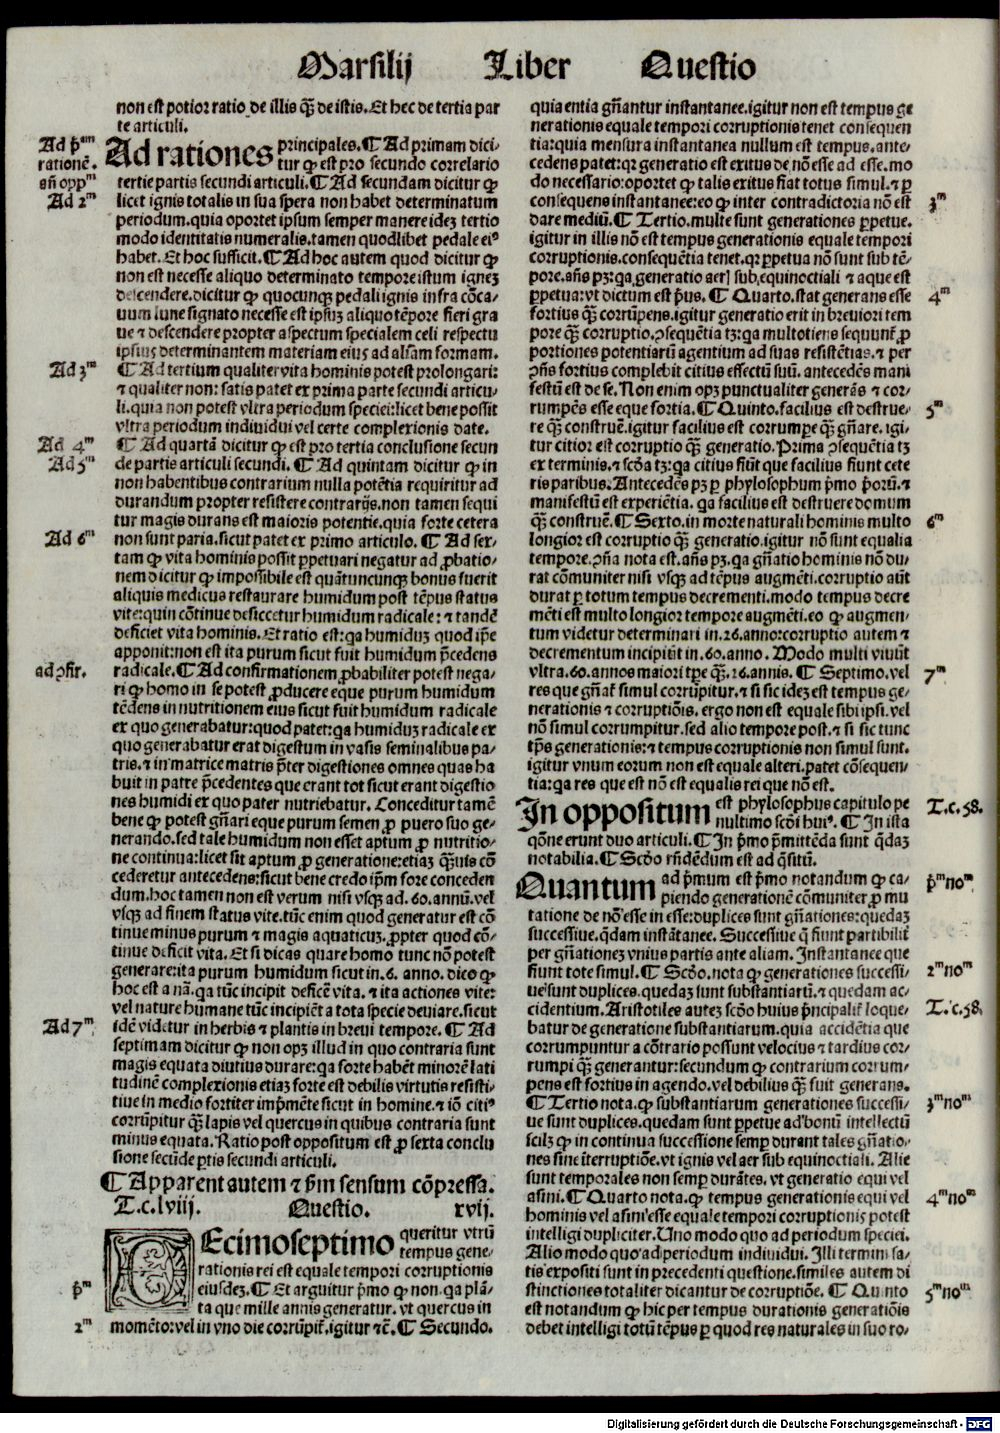 Marsilij Liber Questio
non est potior ratio de illis qȝ de istis. Et hec de tertia par
te articuli.
Ad p̄am rationē.
Ad rationes principales. ¶ Ad primam dici/
tur ꝙ est pro secundo correlario
sn̄ oppm
tertie partis secundi articuli. ¶ Ad secundam dicitur ꝙ
Ad 2m
licet ignis totalis in sua spera non habet determinatum
periodum. quia oportet ipsum semper manere idez tertio
modo identitatis numeralis. tamen quodlibet pedale eiꝰ
habet. Et hoc sufficit. ¶ Ad hoc autem quod dicitur ꝙ
non est necesse aliquo determinato tempore istum ignez
descendere. dicitur ꝙ quocunqȝ pedali ignis infra cōca/
uum lune signato necesse est ipsuz aliquo tēpore fieri gra
ue ⁊ descendere propter aspectum specialem celi respectu
ipsius determinantem materiam eius ad alsam formam.
Ad 3m
¶ Ad tertium qualiter vita hominis potest prolongari:
⁊ qualiter non: satis patet ex prima parte secundi articu/
li. quia non potest vltra periodum speciei: licet bene possit
vltra periodum indiuidui vel certe complexionis date.
Ad 4m
¶ Ad quartā dicitur ꝙ est pro tertia conclusione secun
Ad 5m
de partis articuli secundi. ¶ Ad quintam dicitur ꝙ in
non habentibus contrarium nulla potētia requiritur ad
durandum propter resistere contrarijs. non tamen sequi
tur magis durans est maioris potentie. quia forte cetera
Ad 6m
non sunt paria. sicut patet ex primo articulo. ¶ Ad sex/
tam ꝙ vita hominis possit ꝑpetuari negatur ad ꝓbatio/
nem dicitur ꝙ impossibile est quātuncunqȝ bonus fuerit
aliquis medicus restaurare humidum post tēpus status
vite: quin cōtinue desiccetur humidum radicale: ⁊ tandē
deficiet vita hominis. Et ratio est: qa humiduz quod ip̄e
apponit: non est ita purum sicut fuit humidum p̄cedens
ad ꝯfir.
radicale. ¶ Ad confirmationem ꝓbabiliter potest nega/
ri ꝙ homo in se potest ꝓducere eque purum humidum
tēdens in nutritionem eius sicut fuit humidum radicale
ex quo generabatur: quod patet: qa humiduz radicale ex
quo generabatur erat digestum in vasis seminalibus pa/
tris. ⁊ in matrice matris p̄ter digestiones omnes quas ha
buit in patre p̄cedentes que erant tot sicut erant digestio
nes humidi ex quo pater nutriebatur. Conceditur tamē
bene ꝙ potest gn̄ari eque purum semen ꝓ puero suo ge/
nerando. sed tale humidum non esset aptum ꝓ nutritio/
ne continua: licet sit aptum ꝓ generatione: etiaz qȝuis cō
cederetur antecedens: sicut bene credo ip̄m fore conceden
dum. hoc tamen non est verum nisi vsqȝ ad. 60. annū. vel
vsqȝ ad finem status vite. tūc enim quod generatur est cō
tinue minus purum ⁊ magis aquaticuz. ꝓpter quod cō/
tinue deficit vita. Et si dicas quare homo tunc nōn potest
generare: ita purum humidum sicut in. 6. anno. dico ꝙ
hoc est a nā. qa tūc incipit deficē vita. ⁊ ita actiones vite:
vel nature humane tūc incipiēt a tota specie deuiare. sicut
Ad 7m
idē videtur in herbis ⁊ plantis in breui tempore. ¶ Ad
septimam dicitur ꝙ non opȝ illud in quo contraria sunt
magis equata diutius durare: qa forte habēt minorē lati
tudinē complexionis etiaz forte est debilis virtutis resisti/
tiue in medio fortiter imp̄mēte sicut in homine. ⁊ iō citiꝰ
corrūpitur qȝ lapis vel quercus in quibus contraria sunt
minus equata. Ratio post oppositum est ꝓ sexta conclu
sione secūde ꝑtis secundi articuli.
¶ Apparent autem ⁊ ꝑm sensum cōpressa.
T. c. lviij. Questio. xvij.
Decimoseptimo queritur vtrū
tempus gene/
rationis rei est equale tempori corruptionis
p̄m
eiusdez. ¶ Et arguitur p̄mo ꝙ non. qa plā/
ta que mille annis generatur. vt quercus in
2m
momēto: vel in vno die corrūpit̄. igitur ⁊c̄. ¶ Secundo.
quia entia gn̄antur instantanee. igitur non est tempus ge
nerationis equale tempori corruptionis tenet consequen
tia: quia mensura instantanea nullum est tempus. ante/
cedens patet: qr generatio est exitus de nō esse ad esse. mo
do necessario: oportet ꝙ talis exitus fiat totus simul. ⁊ ꝑ
3m
consequens instantanee: eo ꝙ inter contradictoria nō est
dare mediū. ¶ Tertio. multe sunt generationes ꝑpetue.
igitur in illis nō est tempus generationis equale tempori
corruptionis. consequētia tenet. qr ꝑpetua nō sunt sub tē/
pore. an̄s pȝ: qa generatio aeris sub equinoctiali ⁊ aque est
4m
ꝑpetua: vt dictum est p̄us. ¶ Quarto. stat generans esse
fortius qȝ corrūpens. igitur generatio erit in breuiori tem
pore qȝ corruptio. ꝯsequētia tȝ: qa multotiens sequunt̄ ꝓ
portiones potentiarū agentium ad suas resistētias. ⁊ per
ꝯn̄s fortius complebit citius effectū suū. antecedēs mani
festū est de se. Non enim opȝ punctualiter generās ⁊ cor/
5m
rumpēs esse eque fortia. ¶ Quinto. facilius est destrue/
re qȝ construē. igitur facilius est corrumpe qȝ gn̄are. igi/
tur citior est corruptio qȝ generatio. Prima ꝯsequētia tȝ
ex terminis. ⁊ scōa tȝ: qa citius fiūt que facilius fiunt cete
ris paribus. Antecedēs pȝ ꝑ phylosophum p̄mo p̄orū. ⁊
manifestū est experiētia. qa facilius est destruere domum
6m
qȝ construē. ¶ Sexto. in morte naturali hominis multo
longior est corruptio qȝ generatio. igitur nō sunt equalia
tempore. ꝯn̄a nota est. an̄s pȝ. qa gn̄atio hominis nō du/
rat cōmuniter nisi vsqȝ ad tēpus augmēti. corruptio aūt
durat ꝑ totum tempus decrementi. modo tempus decre
mēti est multo longior tempore augmēti. eo ꝙ augmen/
tum videtur determinari in. 26. anno: corruptio autem ⁊
decrementum incipiūt in. 60. anno. Modo multi viuūt
7m
vltra. 60. annos maiori tꝑe qȝ. 26. annis. ¶ Septimo. vel
res que gn̄at̄ simul corrūpitur. ⁊ si sic idez est tempus ge/
nerationis ⁊ corruptiōis. ergo non est equale sibi ipsi. vel
nō simul corrumpitur. sed alio tempore post. ⁊ si sic tunc
tp̄s generationis: ⁊ tempus corruptionis non simul sunt.
igitur vnum eorum non est equale alteri. patet cōsequen/
tia: qa res que est nō est equalis rei que nō est.
T. c. 58.
In oppositum est phylosophus capitulo pe
nultimo scōi huiꝰ. ¶ In ista
qōne erunt duo articuli. ¶ In p̄mo p̄mittēda sunt q̄daȝ
notabilia. ¶ Scōo rn̄dēdum est ad q̄situ̅.
p̄m nom
Quantum ad p̄mum est p̄mo notandum ꝙ ca/
piendo generationē cōmuniter ꝓ mu
tatione de nō esse in esse: duplices sunt gn̄ationes: quedaȝ
successiue. q̄dam instātanee. Successiue q̄ fiunt partibilit̄
per gn̄ationez vnius partis ante aliam. Instantanee que
2m nom
fiunt tote simul. ¶ Scōo. nota ꝙ generationes successi/
ue sunt duplices. quedaȝ sunt substantiarū. ⁊ quedam ac/
T. c. 58.
cidentium. Aristotiles autez scōo huius p̄ncipalit̄ loque/
batur de generatione substantiarum. quia accidētia que
corrumpuntur a cōtrario possunt velocius ⁊ tardius cor/
rumpi qȝ generantur: secundum ꝙ contrarium corrum/
pens est fortius in agendo. vel debilius qȝ fuit generans.
3m nom
¶ Tertio nota. ꝙ substantiarum generationes successi/
ue sunt duplices. quedam sunt ꝑpetue ad bonū intellectū
scilȝ ꝙ in continua successione semꝑ durant tales gn̄atio/
nes sine īterruptiōe. vt ignis vel aer sub equinoctiali. Alie
sunt temporales non semꝑ durātes. vt generatio equi vel
4m nom
asini. ¶ Quarto nota. ꝙ tempus generationis equi vel
hominis vel asini esse equale tempori corruptionis potest
intelligi dupliciter. Uno modo quo ad periodum speciei.
Alio modo quo ad periodum indiuidui. Illi termini sa/
tis expositi sunt in precedenti questione. similes autem di
5m nom
stinctiones totaliter dicantur de corruptiōe. ¶ Quinto
est notandum ꝙ hic per tempus durationis generatiōis
debet intelligi totū tēpus ꝑ quod res naturales in suo ro/
Digitalisierung gefördert durch die Deutsche Forschungsgemeinschaft - DFG